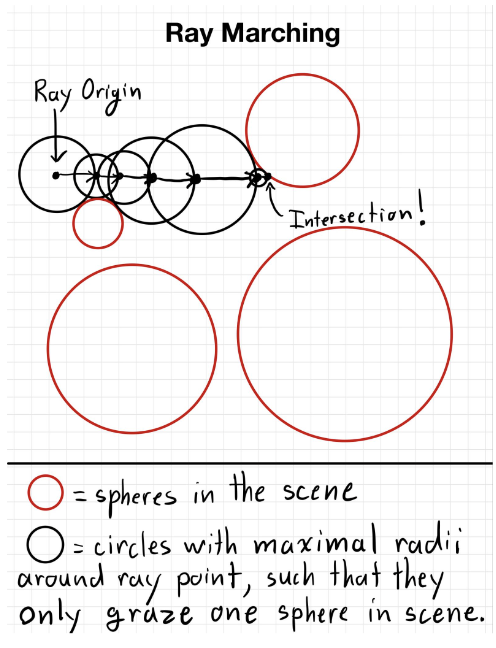 Ray Marching
Ray Origin
Intersection!
= spheres in the scene
= circles with maximal radii
around ray point, such that they
only graze one sphere in scene.